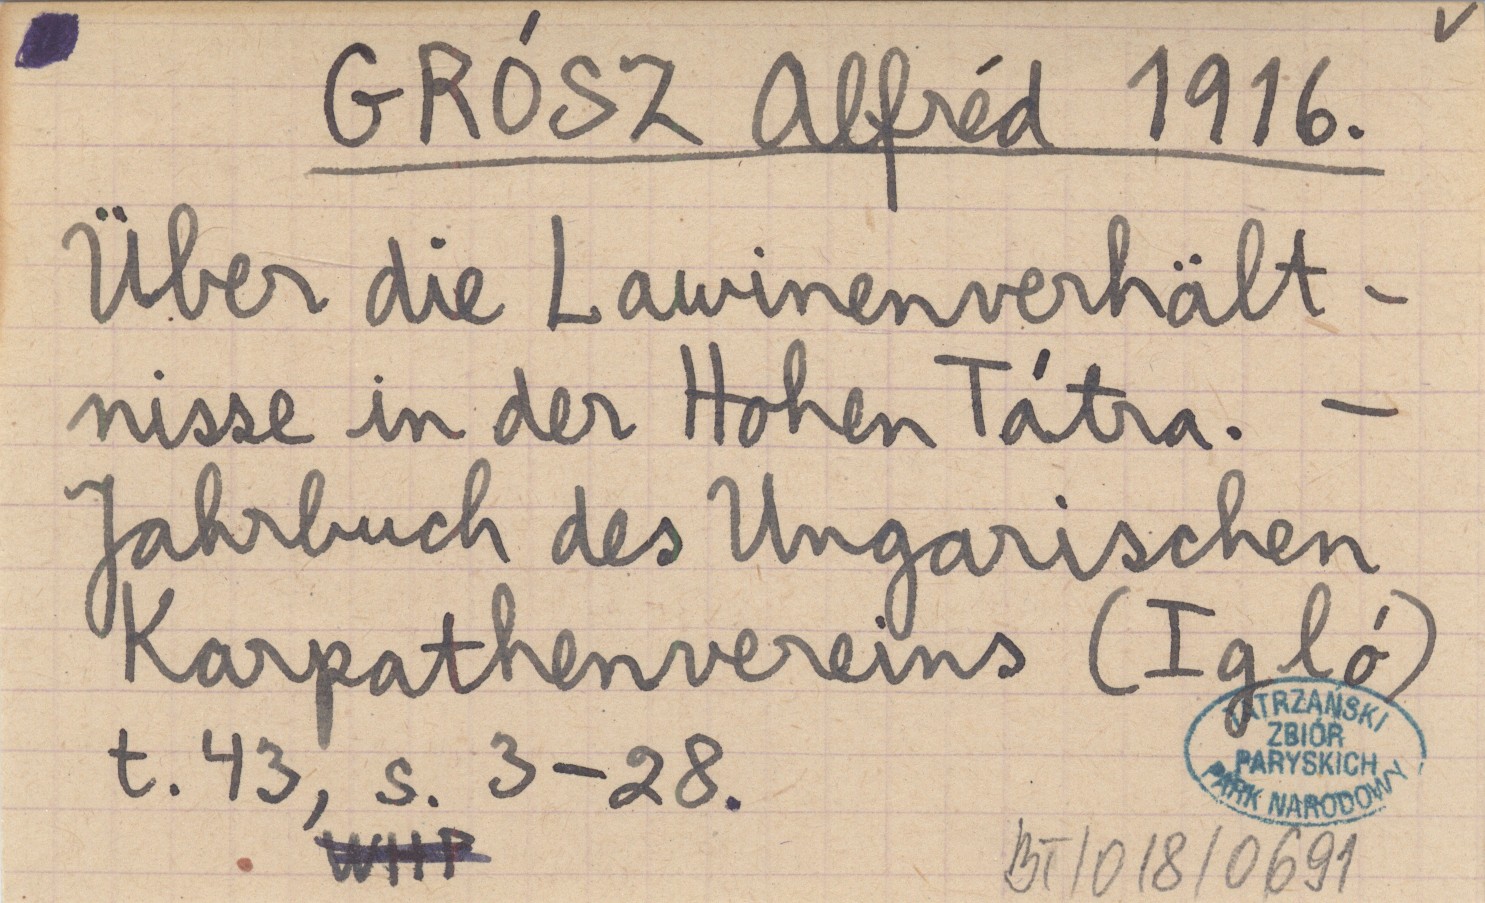 GRÓSZ Alfréd 1916.
Über die Lawinenverhält-
nisse in der Hohen Tátra. –
Jahrbuch des Ungarischen
Karpathenvereins (Igló)
t. 43, s. 3–28.
WHP
TATRZAŃSKI
ZBIÓR
PARYSKICH
PARK NARODOWY
BT/018/0691